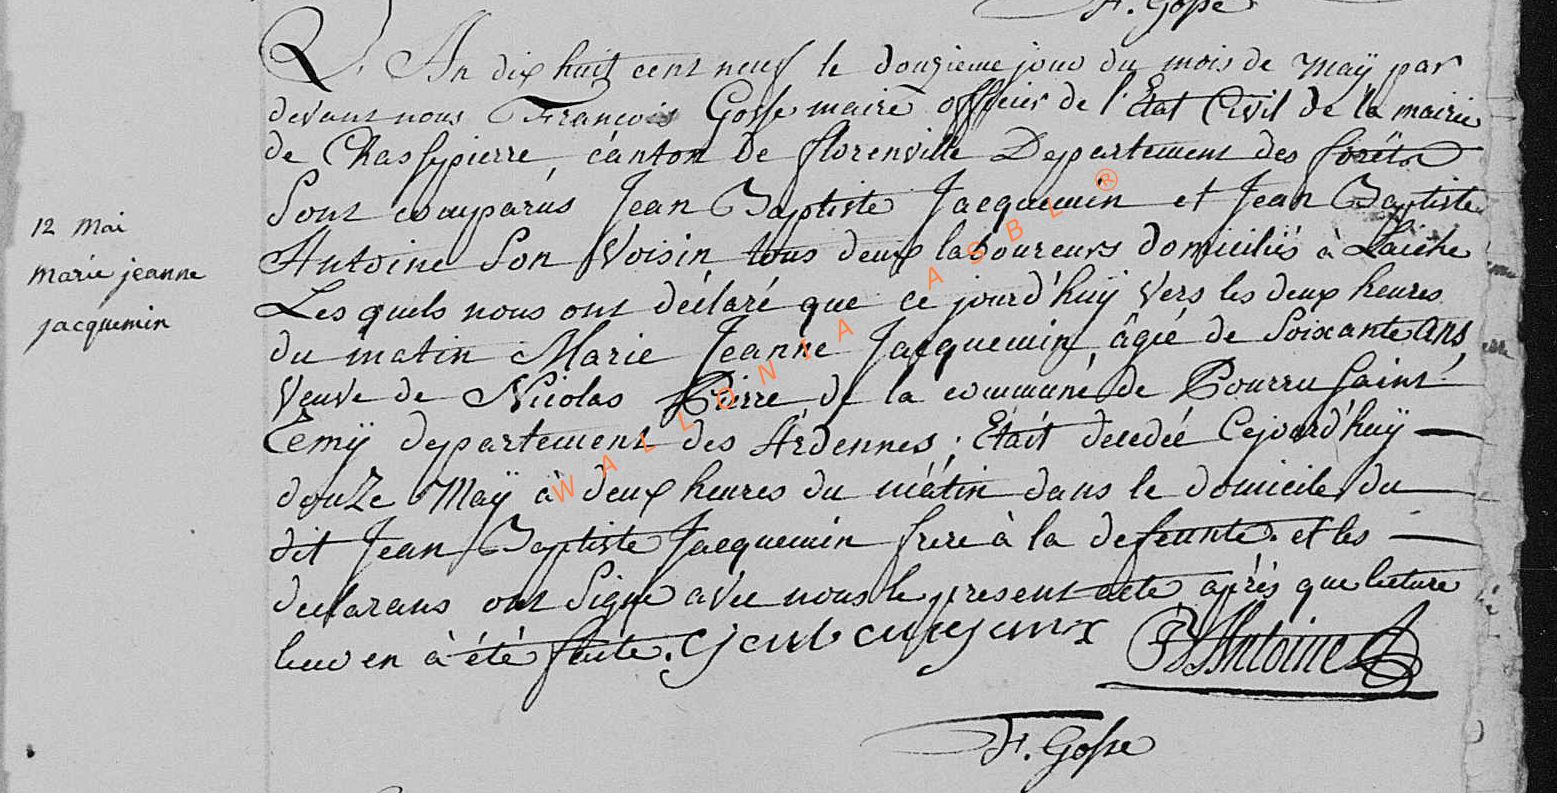 F. Gosse
L'An dix huit cent neuf le douzieme jour du mois de maÿ par
devant nous François Gosse maire officier de l'Etat Civil de la mairie
de Chassepierre, canton de florenville Departement des forêts
Sont comparus Jean Baptiste Jacquemin et Jean Baptiste
Antoine Son Voisin tous deux laboureurs domiciliés à Laiche
Les quels nous ont déclaré que ce jourd'huÿ vers les deux heures
du matin Marie Jeanne Jacquemin, âgée de Soixante ans,
Veuve de Nicolas Pierre de la commune de Pourru Saint
Remÿ departement des Ardennes; Etait decedée Cejourd'huÿ
douze Maÿ à deux heures du matin dans le domicile du
dit Jean Baptiste Jacquemin frere à la defeunte. et les
declarans ont Signé avec nous le present acte, après que lecture
leur en à été faite.
JB Antoine
F. Gosse
12 mai
marie jeanne
jacquemin
WALLONIA ASBL ®